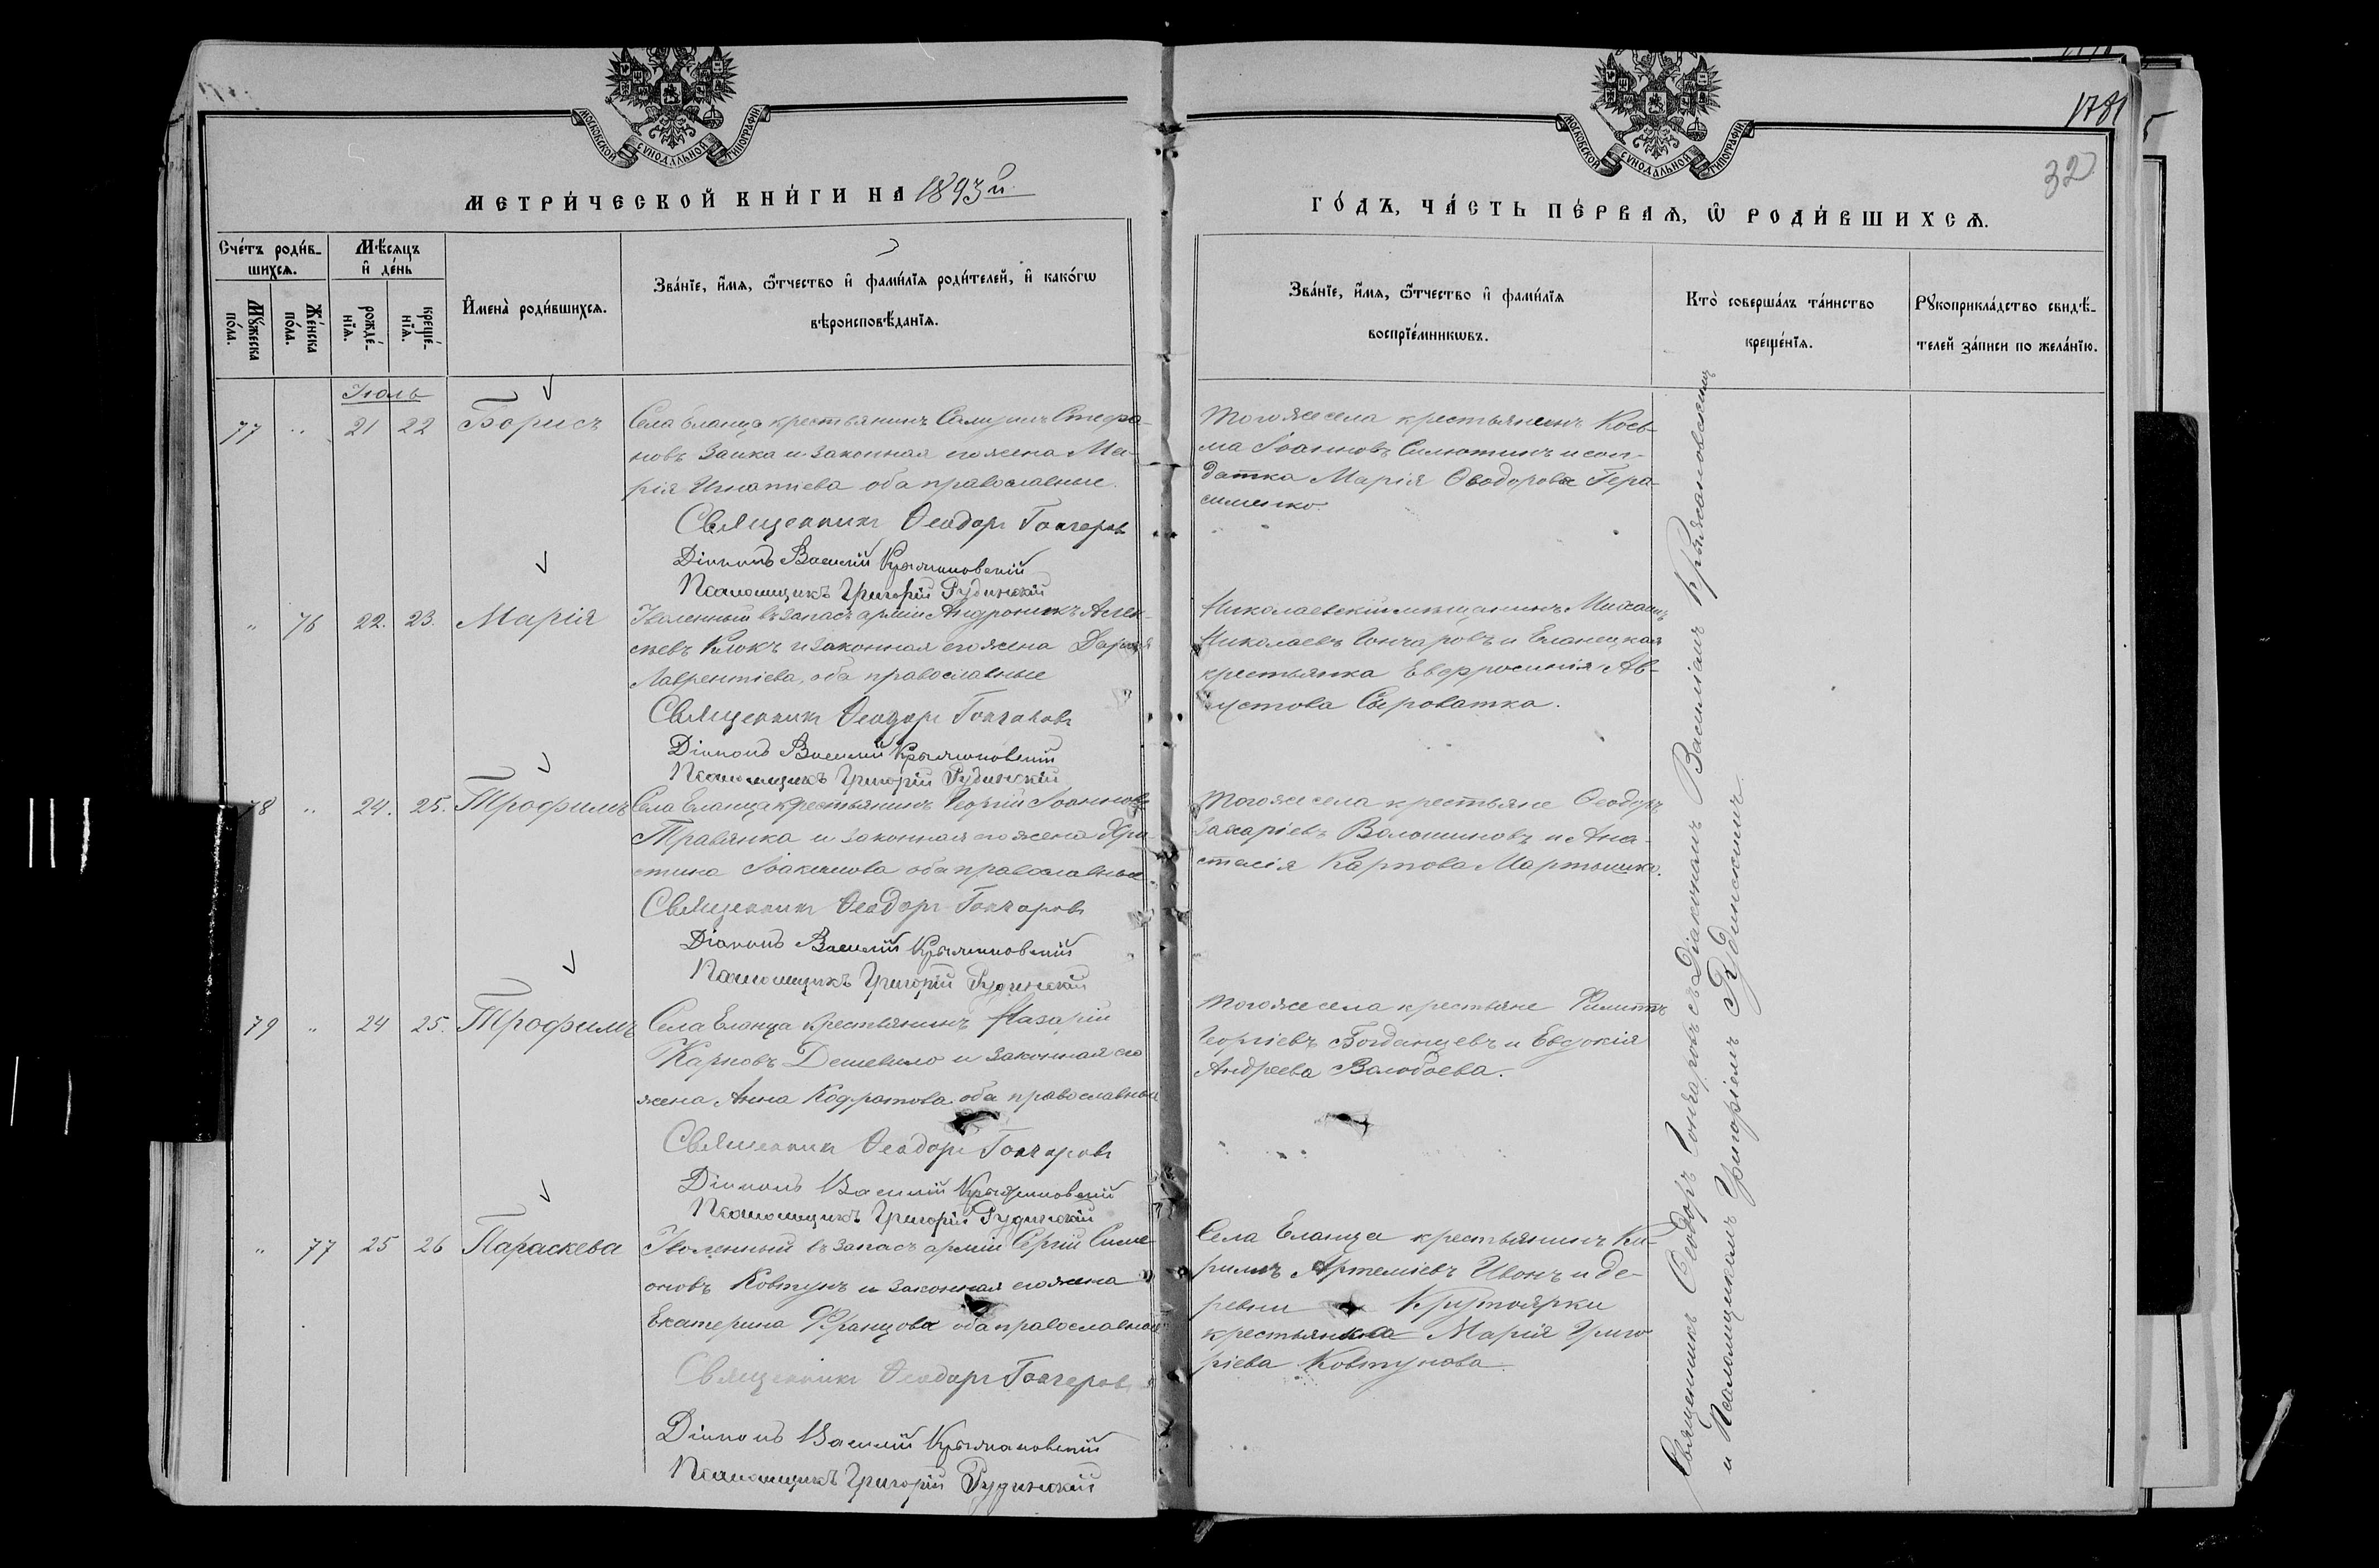 МОСКОВСКОЙ СУНОДАЛЬНОЙ ТИПОГРАФІИ.
МЕТРИ́ЧЕСКОЙ КНИ́ГИ НА 1893й
Сче́тъ роди́в-
шихсѧ.
Мѣ́сяцъ
и҆ де́нь
Мꙋ́жеска
по́ла.
Же́нска
по́ла.
рожде́-
нїѧ.
креще́-
нїѧ.
И҆мена̀ роди́вшихсѧ.
Зва́нїе, и҆́мѧ, ѻ҆́тчество и҆ фами́лїѧ роди́телей, и҆ како́гѡ
вѣроисповѣ́данїѧ.
Іюль
77 " 21 22 Борисъ
Села Еланца крестьянинъ Самуилъ Стефа-
новъ Заика и законная его жена Ма-
рія Игнатіева оба православные.
Священникъ Ѳеодоръ Гончаровъ
Діаконъ Василій Крыжановскій
Псаломщикъ Григорій Рудинскій
" 76 22. 23. Марія
Уволенный въ запасъ арміи Андроникъ Алек-
сѣевъ Клокъ и законная его жена Дарія
Лаврентіева, оба православные
Священникъ Ѳеодоръ Гончаровъ
Діаконъ Василій Крыжановскій
Псаломщикъ Григорій Рудинскій
78 " 24. 25. Трофимъ
Села Еланца крестьянинъ Георгій Іоанновъ
Травянка и законная его жена Хри-
стина Іоакимова оба православные
Священникъ Ѳеодоръ Гончаровъ
Діаконъ Василій Крыжановскій
Псаломщикъ Григорій Рудинскій
79 " 24 25. Трофимъ
Села Еланца крестьянинъ Назарій
Карповъ Дешевило и законная его
жена Анна Кодратова оба православные
Священникъ Ѳеодоръ Гончаровъ
Діаконъ Василій Крыжановскій
Псаломщикъ Григорій Рудинскій
" 77 25 26 Параскева
Уволенный въ запасъ арміи Сергій Симе-
оновъ Ковтунъ и законная его жена
Екатерина Францова оба православные
Священникъ Ѳеодоръ Гончаровъ
Діаконъ Василій Крыжановскій
Псаломщикъ Григорій Рудинскій
МОСКОВСКОЙ СУНОДАЛЬНОЙ ТИПОГРАФІИ.
32
ГО́ДЪ, ЧА́СТЬ ПЕ́РВАѦ, Ѡ҆ РОДИ́ВШИХСѦ.
Зва́нїе, и҆́мѧ, ѻ҆́тчество и҆ фами́лїѧ
воспрїе́мникѡвъ.
Кто̀ соверша́лъ та́инство
креще́нїѧ.
Рꙋкоприкла́дство свидѣ́-
телей за́писи по жела́нїю.
Того же села крестьянинъ Косъ-
ма Іоанновъ Силютинъ и сол-
датка Марія Ѳеодорова Гера-
сименко.
Николаевскій мѣщанинъ Михаилъ
Николаевъ Гончаровъ и Еланецкая
крестьянка Евфросинія Ав-
густова Сыроватка.
Того же села крестьяне Ѳеодоръ
Захаріевъ Волошиновъ и Ана-
стасія Карпова Мартынько.
Того же села крестьяне Филиппъ
Георгіевъ Богданцевъ и Евдокія
Андреева Волобоева.
Села Еланца крестьянинъ Ки-
риллъ Артеміевъ Ивонъ и де-
ревни Крутоярки
крестьянка Марія Григо-
ріева Ковтунова.
Священникъ Ѳеодоръ Гончаровъ съ Діакономъ Василіемъ Крыжановскимъ
и Псаломщикомъ Григоріемъ Рудинскимъ